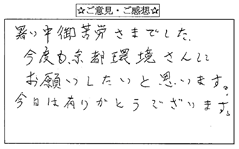 ☆ご意見・ご感想☆
暑い中御苦労さまでした。
今度も京都環境さんに
お願いしたいと思います。
今日は有りがとうございます。